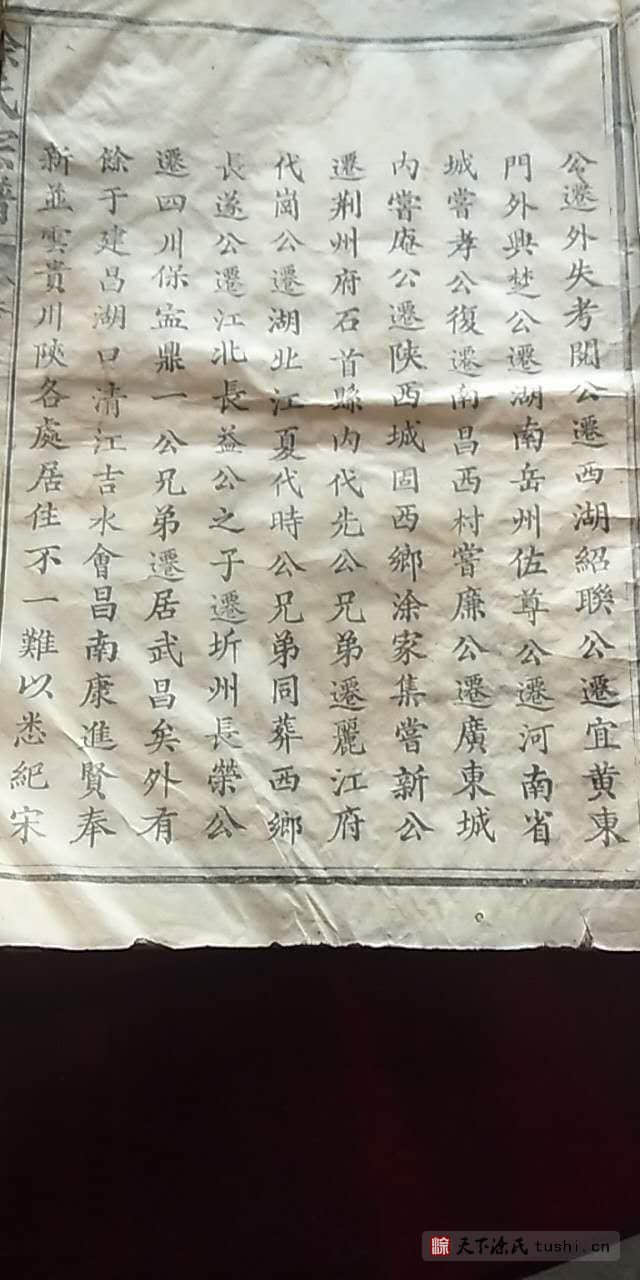 公遷外失考閱公遷西湖紹聯公遷宜黃東
門外興楚公遷湖南岳州佐尊公遷河南省
城嘗孝公復遷南昌西村嘗廉公遷廣東城
內嘗庵公遷陝西城固西鄉涂家集嘗新公
遷荆州府石首縣內代先公兄弟遷麗江府
代崗公遷湖北江夏代時公兄弟同葬西鄉
長遂公遷江北長益公之子遷圻州長榮公
遷四川保寍鼎一公兄弟遷居武昌矣外有
餘于建昌湖口清江吉水會昌南康進賢奉
新並雲貴川陝各處居住不一難以悉紀宋
氏宗譜
天下涂氏 tushi.cn